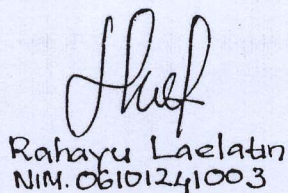 Rahayu Laelatin
NIM. 06101241003